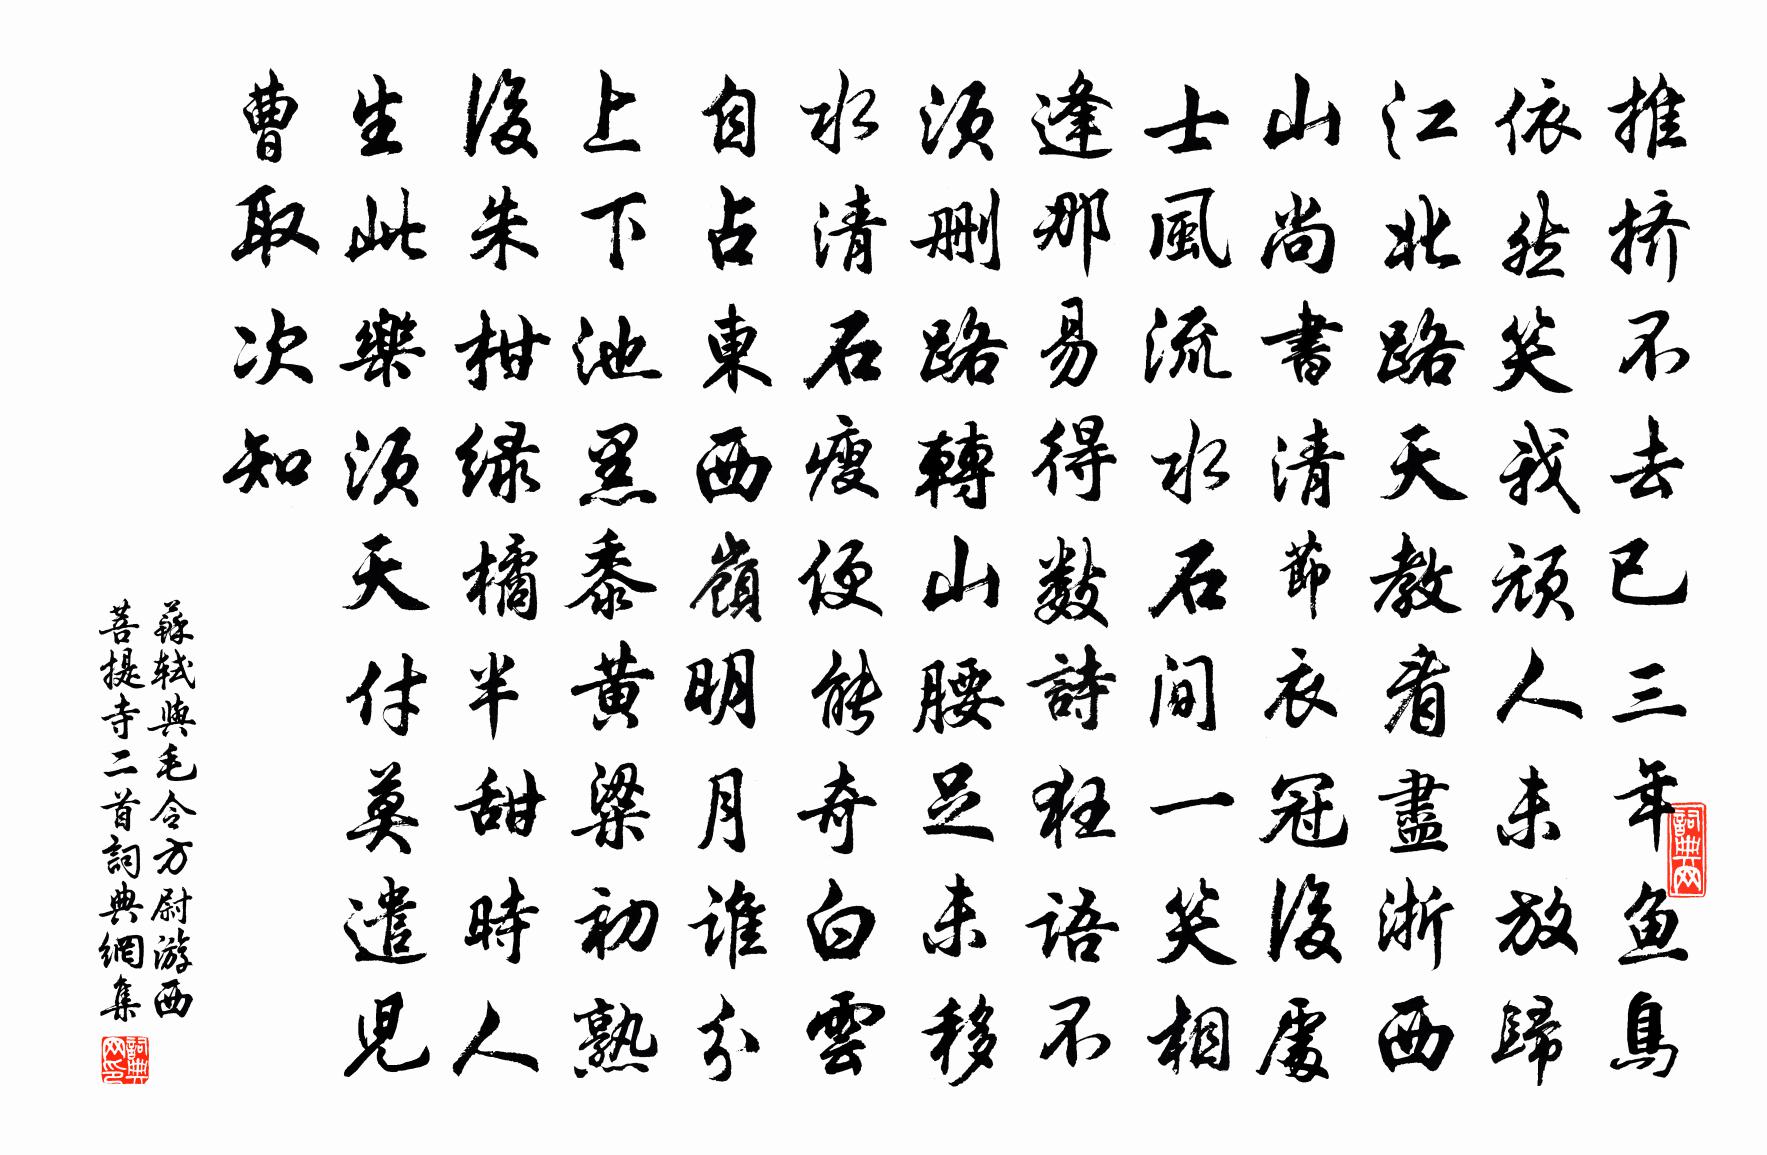 推挤不去已三年魚鳥
依然笑我頑人未放歸
江北路天教看盡浙西
山尚書清節衣冠後處
士風流水石間一笑相
逢那易得數詩狂語不
須刪路轉山腰足未移
水清石瘦便能奇白雲
自占東西嶺明月誰分
上下池黑黍黃粱初熟
後朱柑綠橘半甜時人
生此樂須天付莫遣兒
曹取次知
蘇軾與毛令方尉游西
菩提寺二首詞典網集
詞典网
詞典网印